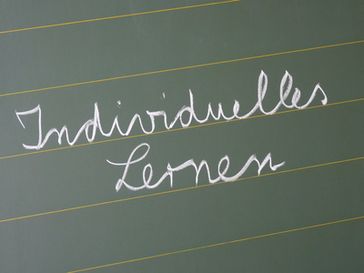 Individuelles
Lernen